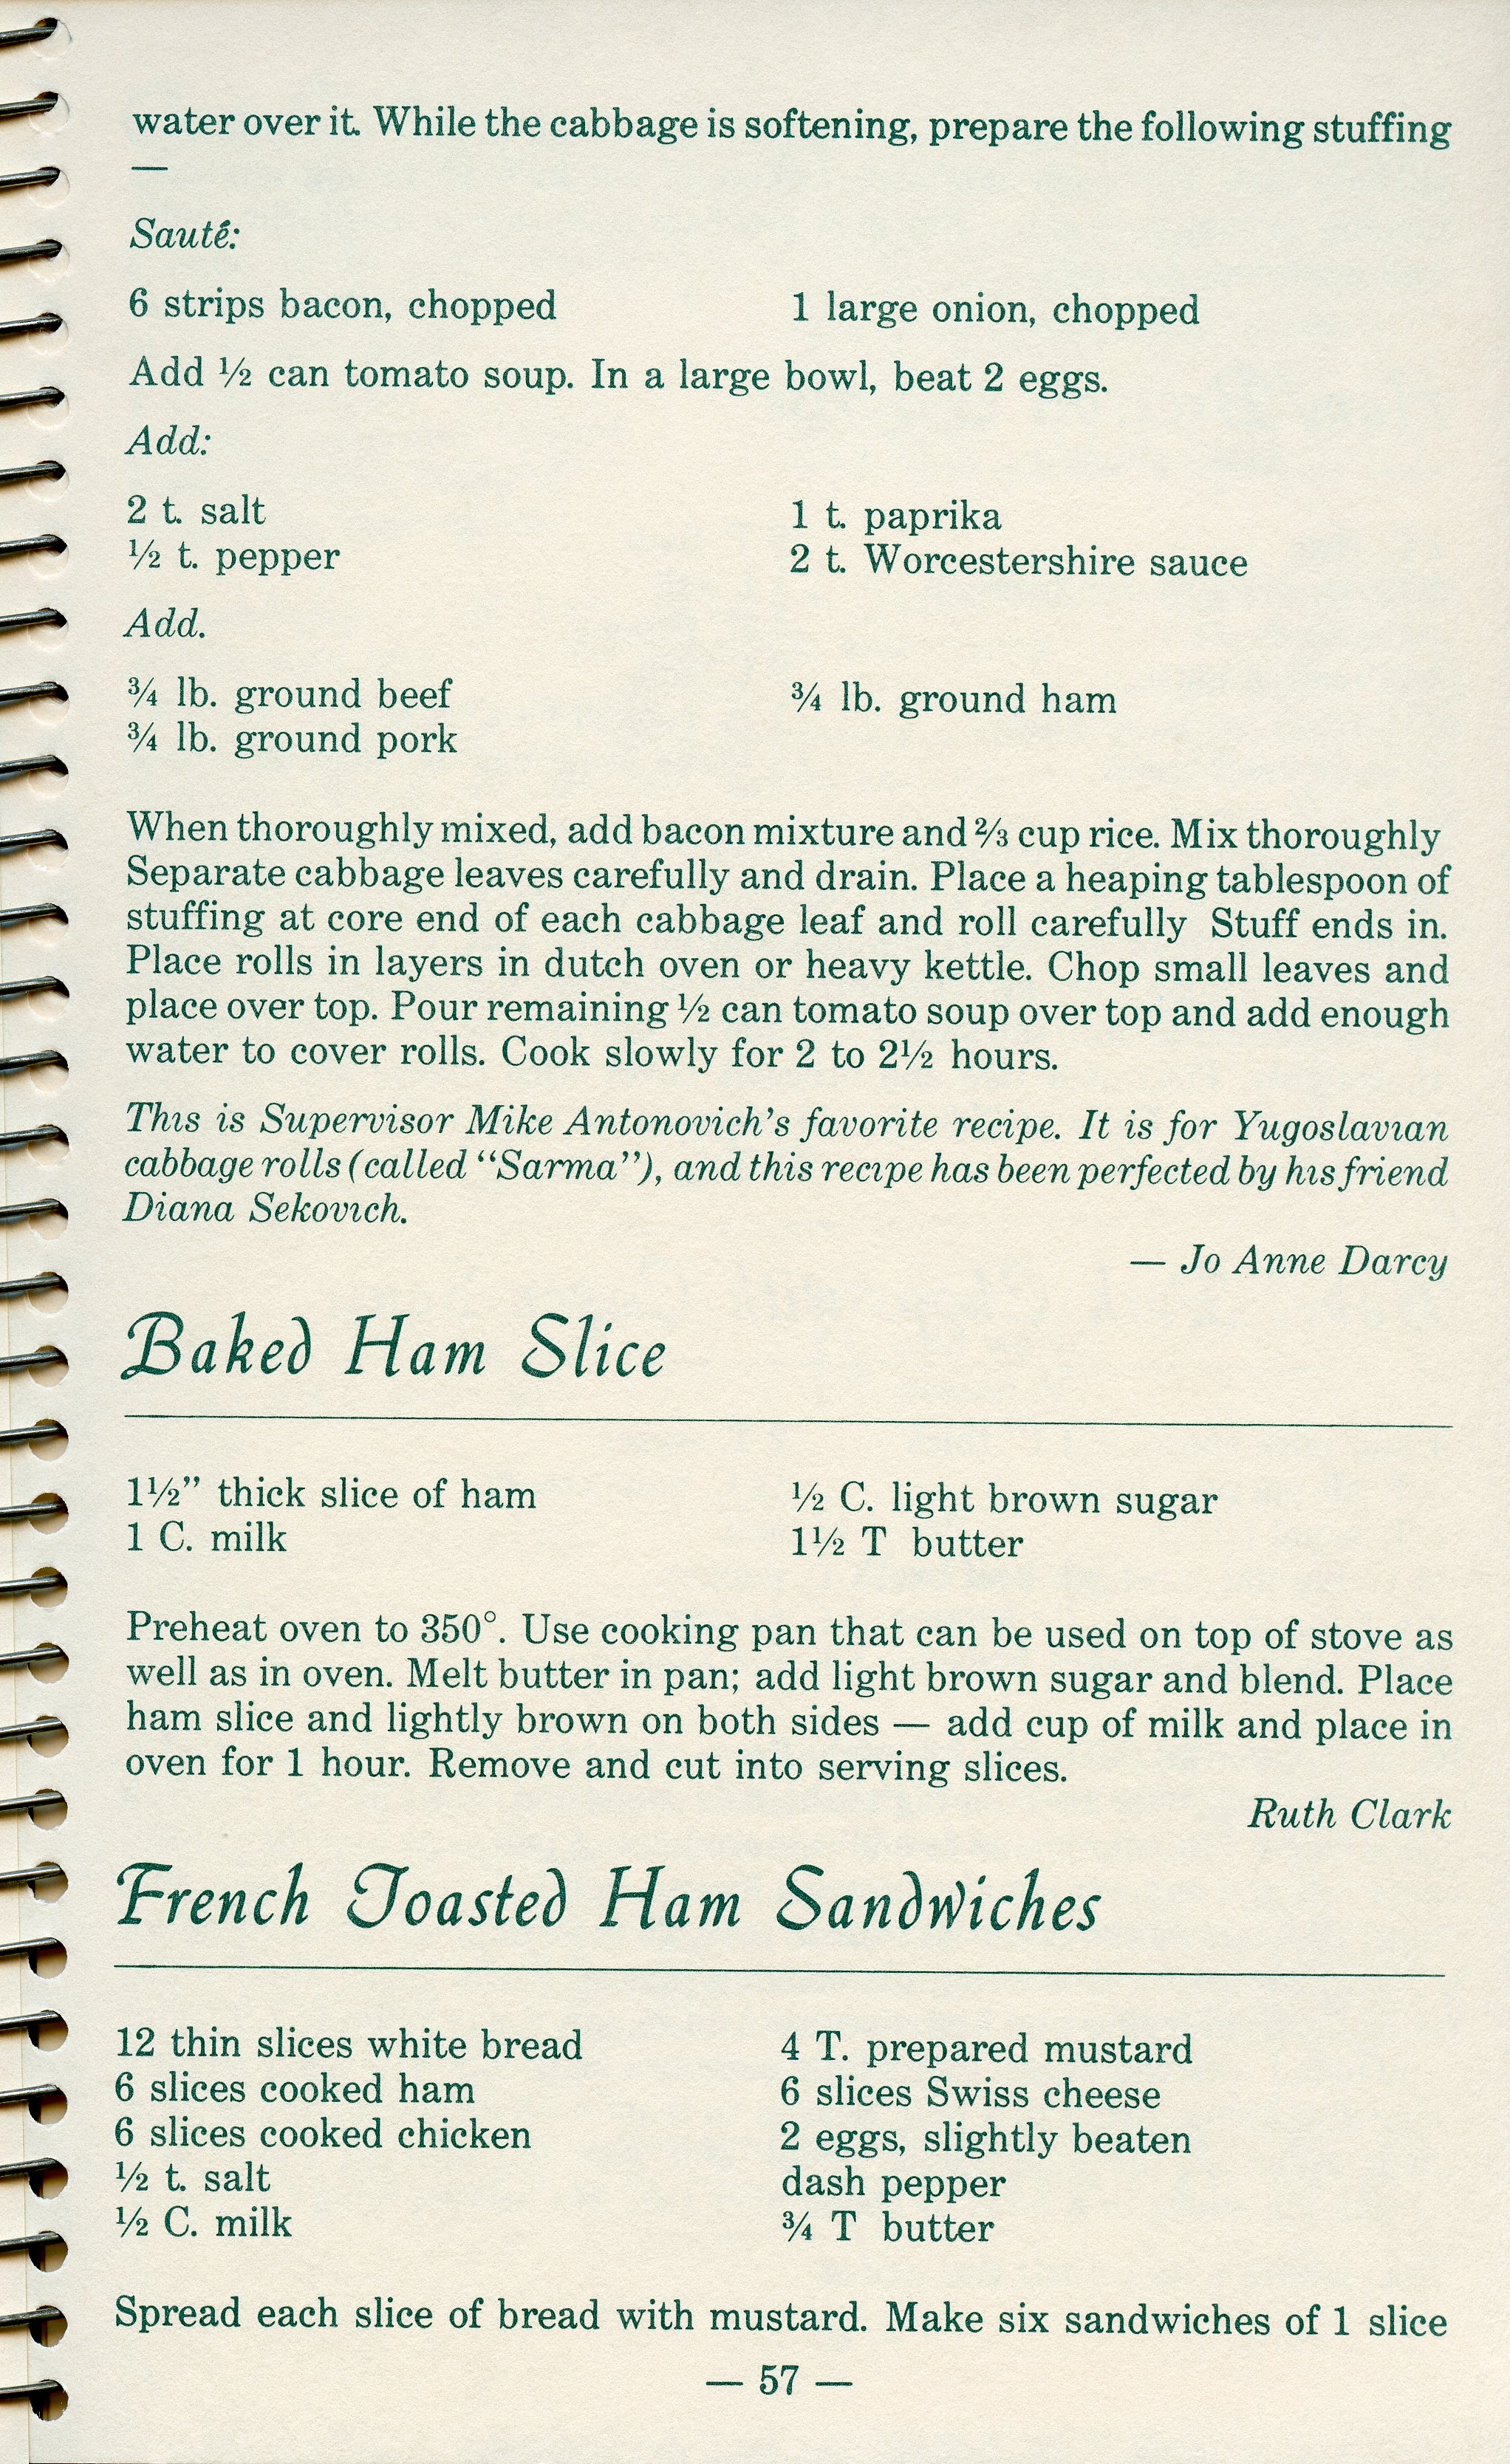 water over it. While the cabbage is softening, prepare the following stuffing
—
Sauté:
6 strips bacon, chopped 1 large onion, chopped
Add ½ can tomato soup. In a large bowl, beat 2 eggs.
Add:
2 t. salt 1 t. paprika
½ t. pepper 2 t. Worcestershire sauce
Add.
¾ lb. ground beef ¾ lb. ground ham
¾ lb. ground pork
When thoroughly mixed, add bacon mixture and ⅔ cup rice. Mix thoroughly
Separate cabbage leaves carefully and drain. Place a heaping tablespoon of
stuffing at core end of each cabbage leaf and roll carefully Stuff ends in.
Place rolls in layers in dutch oven or heavy kettle. Chop small leaves and
place over top. Pour remaining ½ can tomato soup over top and add enough
water to cover rolls. Cook slowly for 2 to 2½ hours.
This is Supervisor Mike Antonovich's favorite recipe. It is for Yugoslavian
cabbage rolls (called “Sarma”), and this recipe has been perfected by his friend
Diana Sekovich.
— Jo Anne Darcy
Baked Ham Slice
1½” thick slice of ham ½ C. light brown sugar
1 C. milk 1½ T butter
Preheat oven to 350°. Use cooking pan that can be used on top of stove as
well as in oven. Melt butter in pan; add light brown sugar and blend. Place
ham slice and lightly brown on both sides — add cup of milk and place in
oven for 1 hour. Remove and cut into serving slices.
Ruth Clark
French Toasted Ham Sandwiches
12 thin slices white bread 4 T. prepared mustard
6 slices cooked ham 6 slices Swiss cheese
6 slices cooked chicken 2 eggs, slightly beaten
½ t. salt dash pepper
½ C. milk ¾ T butter
Spread each slice of bread with mustard. Make six sandwiches of 1 slice
— 57 —